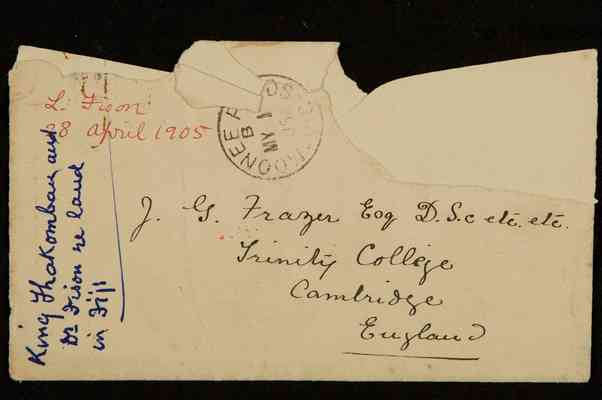 L. Fison
28 April 1905
MY 1
B
J. G. Frazer Esq D.Sc etc. etc.
Trinity College
Cambridge
England
King Thakombau and
Dr Fison re land
in Fiji